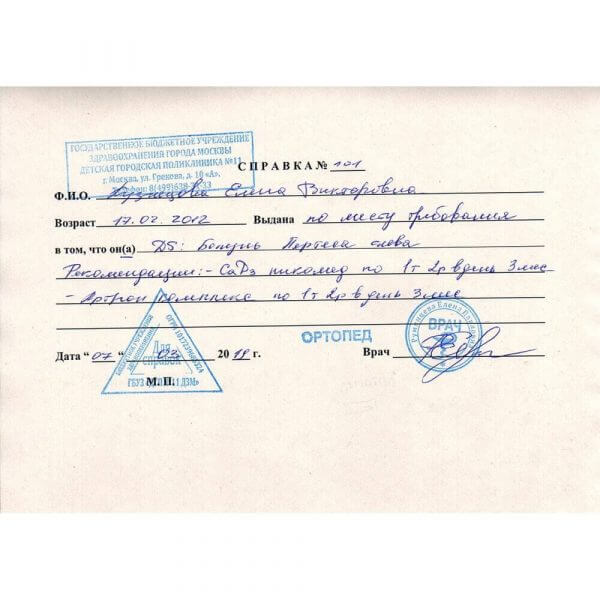 ГОСУДАРСТВЕННОЕ БЮДЖЕТНОЕ УЧРЕЖДЕНИЕ
ЗДРАВООХРАНЕНИЯ ГОРОДА МОСКВЫ
ДЕТСКАЯ ГОРОДСКАЯ ПОЛИКЛИНИКА №11
г. Москва, ул. Грекова, д. 10 «А».
Телефон: 8(499)638-
СПРАВКА № 101
Ф.И.О. Кузнецова Елена Викторовна
Возраст 17.02.2012 Выдана по месту требования
в том, что он(а) DS: Болезнь Пертеса слева
Рекомендации: - СаD3 никомед по 1т 2р в день 3 мес
- Артрон комплекс по 1т 2р в день 3 мес
Для
справок
ОРТОПЕД
ВРАЧ
Дата "07" 03 2019 г. Врач
М. П.